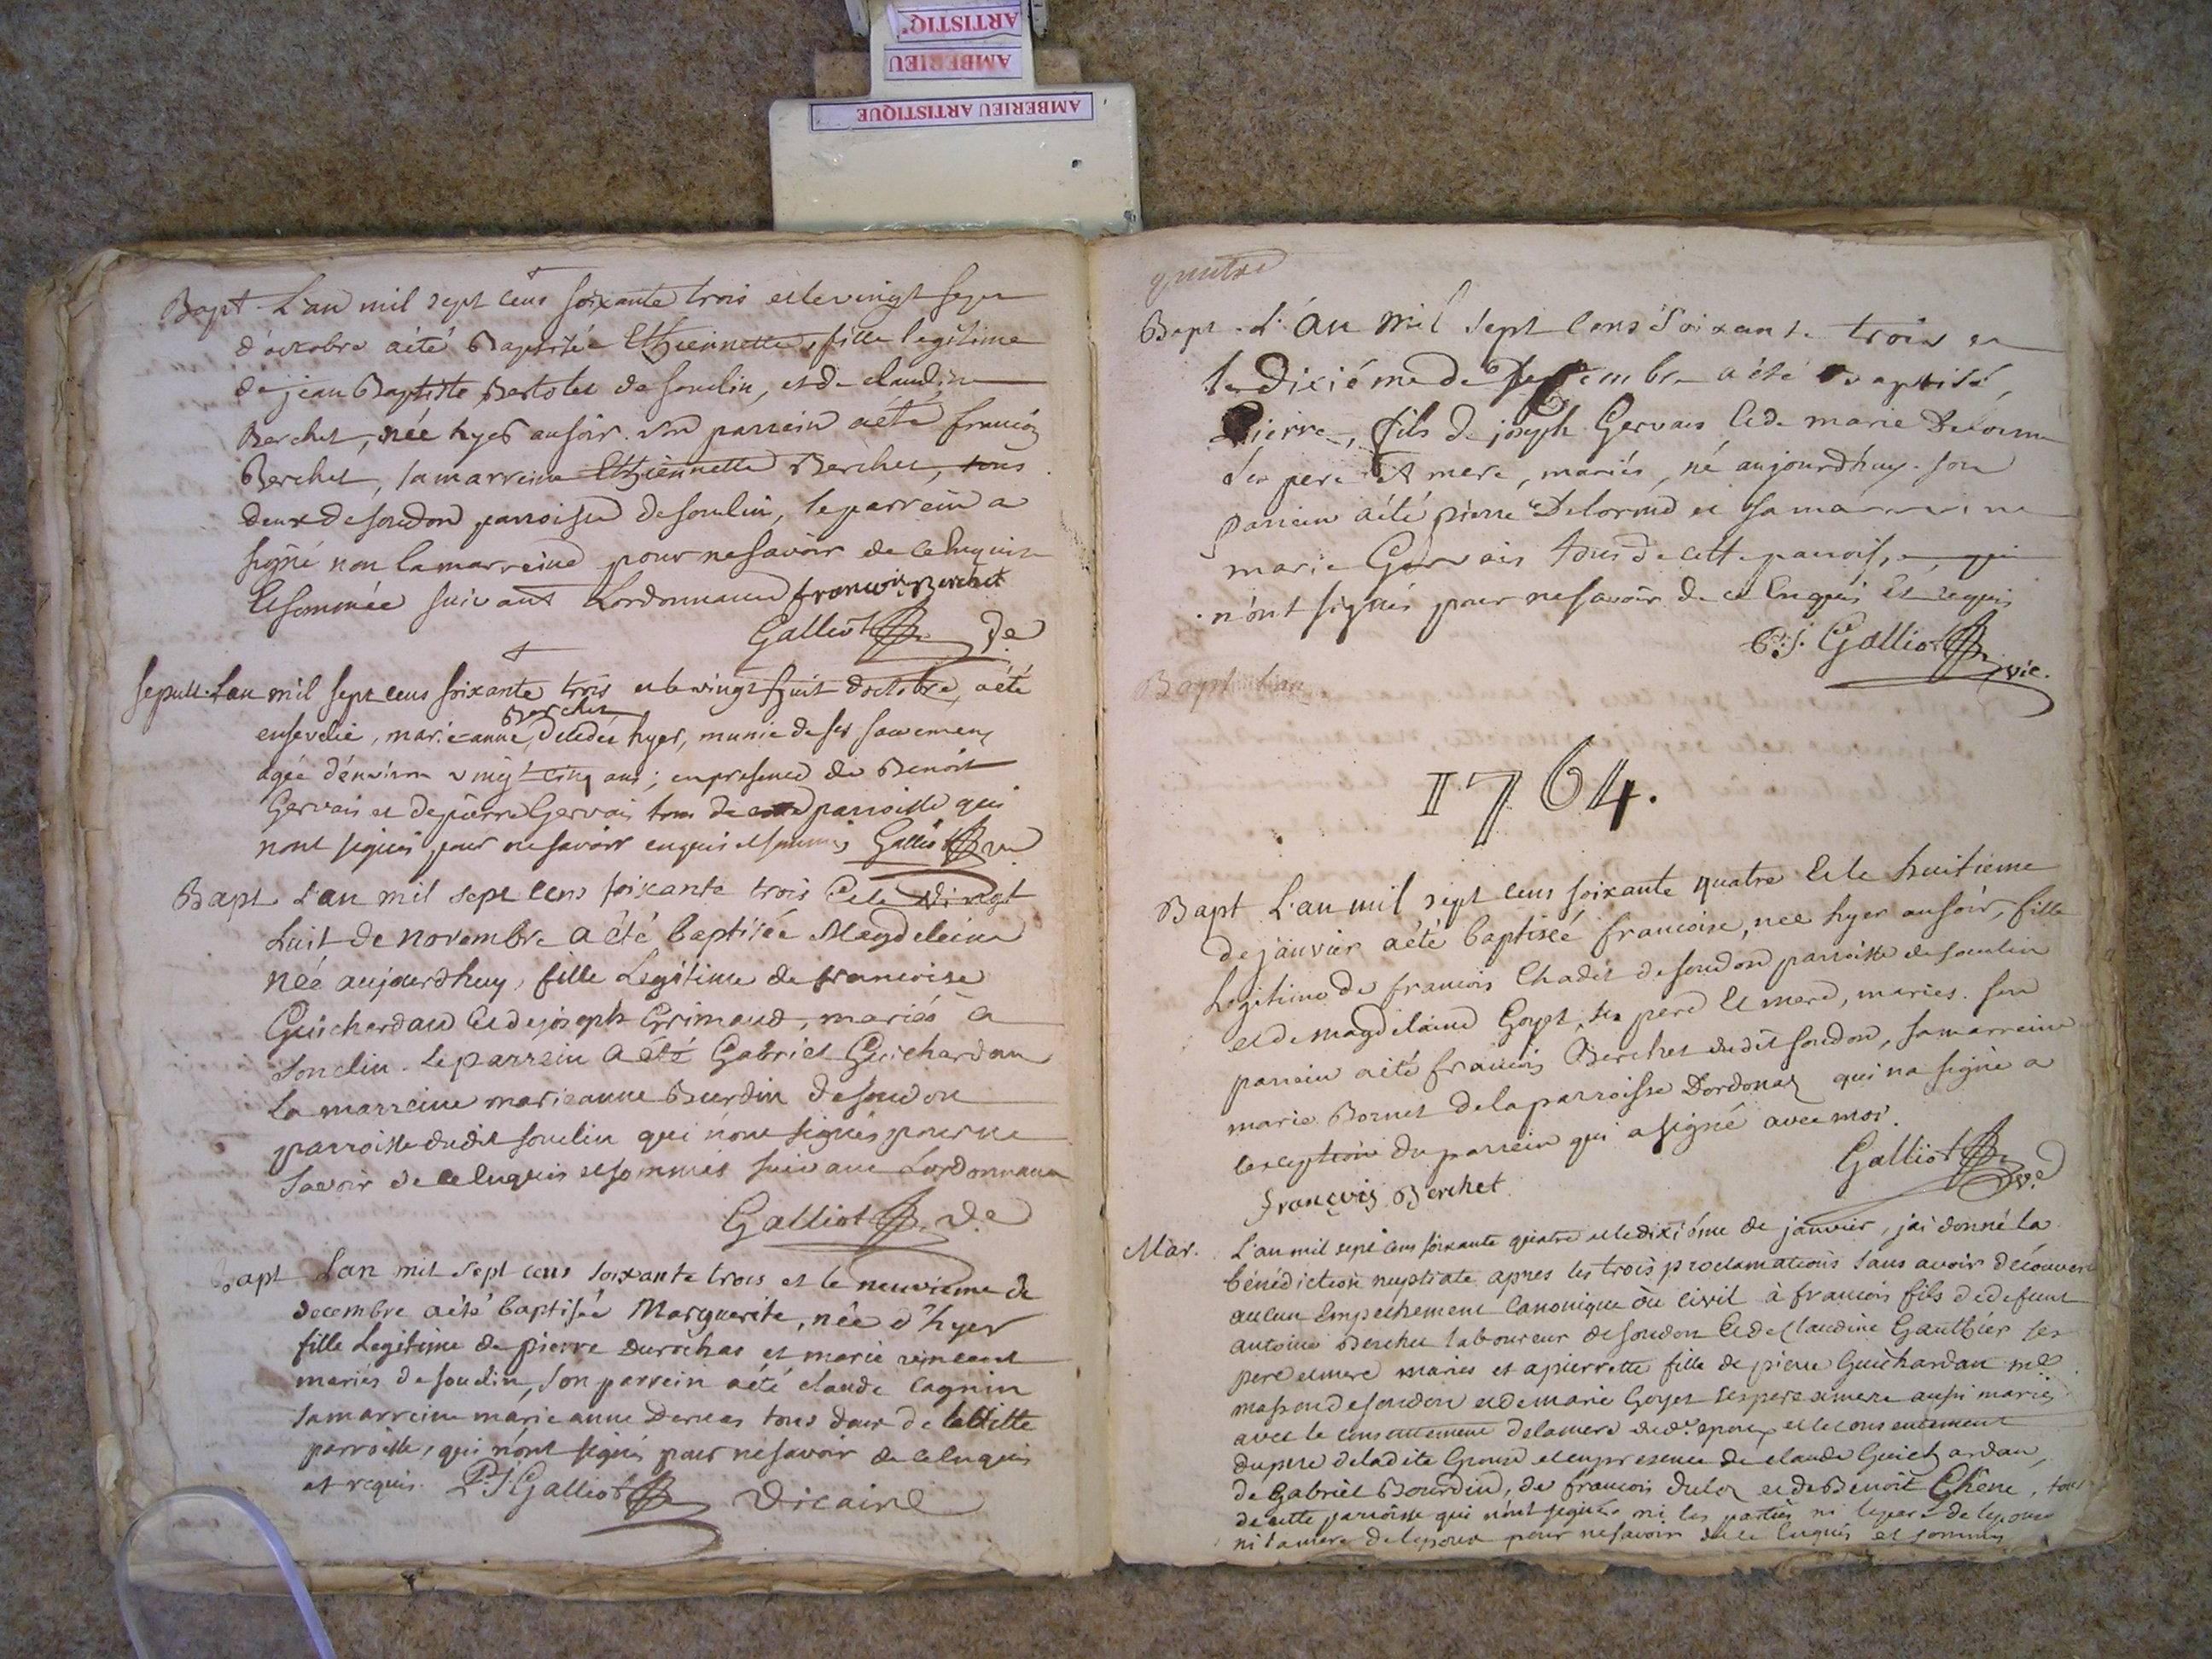 ARTISTIQ
AMBERIEU
AMBERIEU ARTISTIQUE
Bapt. L'an mil sept cens soixante trois et le vingt sept
d'octobre a été Baptisée Etiennette, fille legitime
de jean Baptiste Bertolet de souclin, et de claudine
Berchet, née hyer au soir. son parrein a été françois
Berchet, sa marreine Etiennette Berchet, tous
deux de soudon parroisse de souclin, le parrein a
signé non la marreine pour ne savoir de ce Enquise
Et sommée suivant Lordonnance francois Berchet
Galliot
sepult. L'an mil sept cens soixante trois et le vingt huit doctobre, a été
Berchet
ensevelie, marie anne, décédée hyer, munie de ses sacremens
agée d'environ vingt cinq ans; en presence de Benoit
Gervais et de pierre Gervais tous de cette parroisse qui
nont signés pour ne savoir enquis et sommés Galliot
Bapt. L'an mil sept cens soixante trois Et le vingt
huit de novembre a été baptisée Magdeleine
née aujourdhuy, fille Legitime de francoise
Guichardan Et de joseph Grimaud, mariés a
Souclin. Le parrein a été Gabriel Guichardan
La marreine marieanne Burdin de soudon
parroisse dudit souclin qui n'ont signés pour ne
savoir de ce Enquis et sommés suivant Lordonnance
Galliot
Bapt Lan mil sept cens soixante trois et le neuvieme de
decembre a été baptisée Marguerite, née d'hyer
fille Legitime de pierre durochas et marie vincent
mariés de souclin, son parrein a été claude cagnin
sa marreine marie anne Dernas tous deux de ladite
parroisse, qui n'ont signés pour ne savoir de ce Enquis
et requis. P. J. Galliot Vicaire
quatre
Bapt. L'an mil sept cens soixante trois et
le dixiéme de decembre a été Baptisé,
Pierre, fils de joseph Gervais Et de marie Delorme
ses pere Et mere, mariés, né aujourdhuy. son
parrein a été pierre Delorme et sa marreine
marie Gervais tous de cette parroisse, qui
n'ont signés pour ne savoir de ce Enquis Et requis
P. J. Galliot vic.
Bapt
1764.
Bapt L'an mil sept cens soixante quatre Et le huitieme
de janvier a été baptisée francoise, née hyer au soir, fille
Legitime de francois Chadit de soudon parroisse de souclin
et de magdelaine Goyet, ses pere Et mere, mariés. son
parrein a été francois Berchet dudit soudon, sa marreine
marie Bornet de la parroisse Dordonaz qui na signé a
lexception du parrein qui a signé avec moi.
Galliot
françois Berchet
Mar. L'an mil sept cens soixante quatre et le dixiéme de janvier, jai donné la
bénédiction nuptiale apres les trois proclamations sans avoir découvert
aucun Empechement canonique ou civil à francois fils de defunt
antoine Berchet laboureur de soudon Et de Claudine Gauthier ses
pere et mere mariés et a pierrette fille de pierre Guichardan me
masson de soudon et de marie Goyet ses pere et mere aussi mariés
avec le consentement de la mere dud. epoux et le consentement
du pere de ladite Epouse et en presence de claude Guichardan,
de Gabriel Bourdin, de francois duloz et de Benoit Chêne, tous
de cette parroisse qui n'ont signés ni les parties ni le pere de lepouse
ni la mere de lepoux pour ne savoir de ce Enquis et sommés